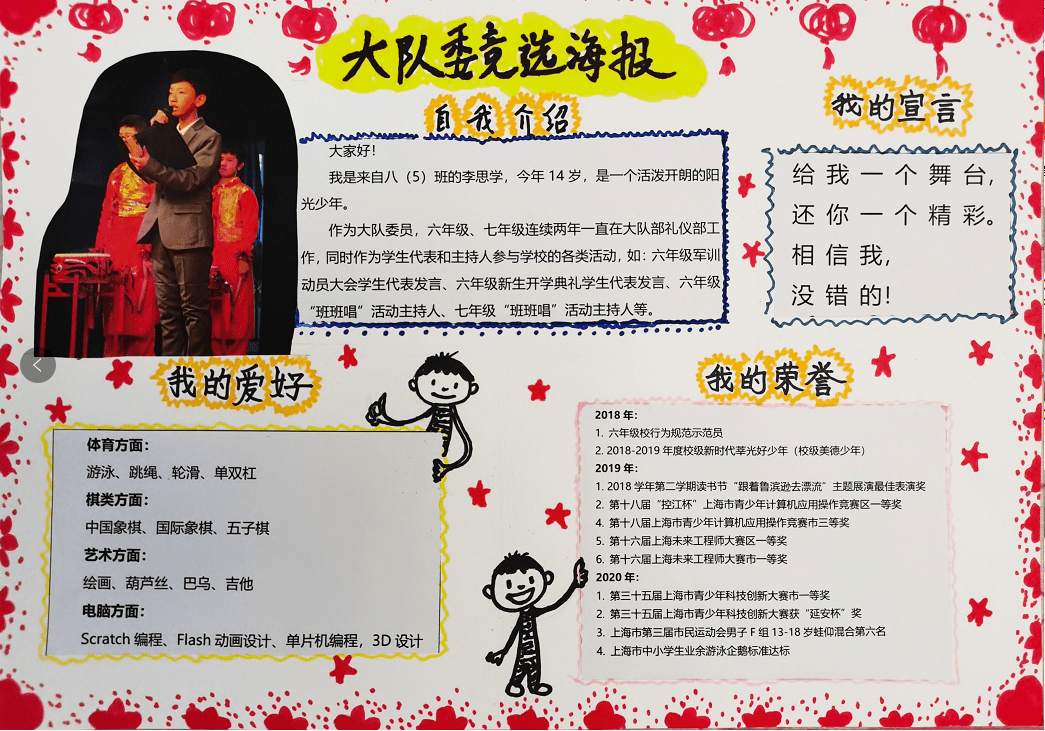 大队委竞选海报
自我介绍
大家好！
我是来自八（5）班的李思学，今年 14 岁，是一个活泼开朗的阳
光少年。
作为大队委员，六年级、七年级连续两年一直在大队部礼仪部工
作，同时作为学生代表和主持人参与学校的各类活动，如：六年级军训
动员大会学生代表发言、六年级新生开学典礼学生代表发言、六年级
“班班唱”活动主持人、七年级“班班唱”活动主持人等。
我的宣言
给我一个舞台，
还你一个精彩。
相信我，
没错的！
我的爱好
体育方面：
游泳、跳绳、轮滑、单双杠
棋类方面：
中国象棋、国际象棋、五子棋
艺术方面：
绘画、葫芦丝、巴乌、吉他
电脑方面：
Scratch 编程、Flash 动画设计、单片机编程，3D 设计
我的荣誉
2018 年：
1. 六年级校行为规范示范员
2. 2018-2019 年度校级新时代莘光好少年（校级美德少年）
2019 年：
1. 2018 学年第二学期读书节“跟着鲁滨逊去漂流”主题展演最佳表演奖
2. 第十八届“控江杯”上海市青少年计算机应用操作竞赛区一等奖
4. 第十八届上海市青少年计算机应用操作竞赛市三等奖
5. 第十六届上海未来工程师大赛区一等奖
6. 第十六届上海未来工程师大赛市一等奖
2020 年：
1. 第三十五届上海市青少年科技创新大赛市一等奖
2. 第三十五届上海市青少年科技创新大赛获“延安杯”奖
3. 上海市第三届市民运动会男子 F 组 13-18 岁蛙仰混合第六名
4. 上海市中小学生业余游泳企鹅标准达标